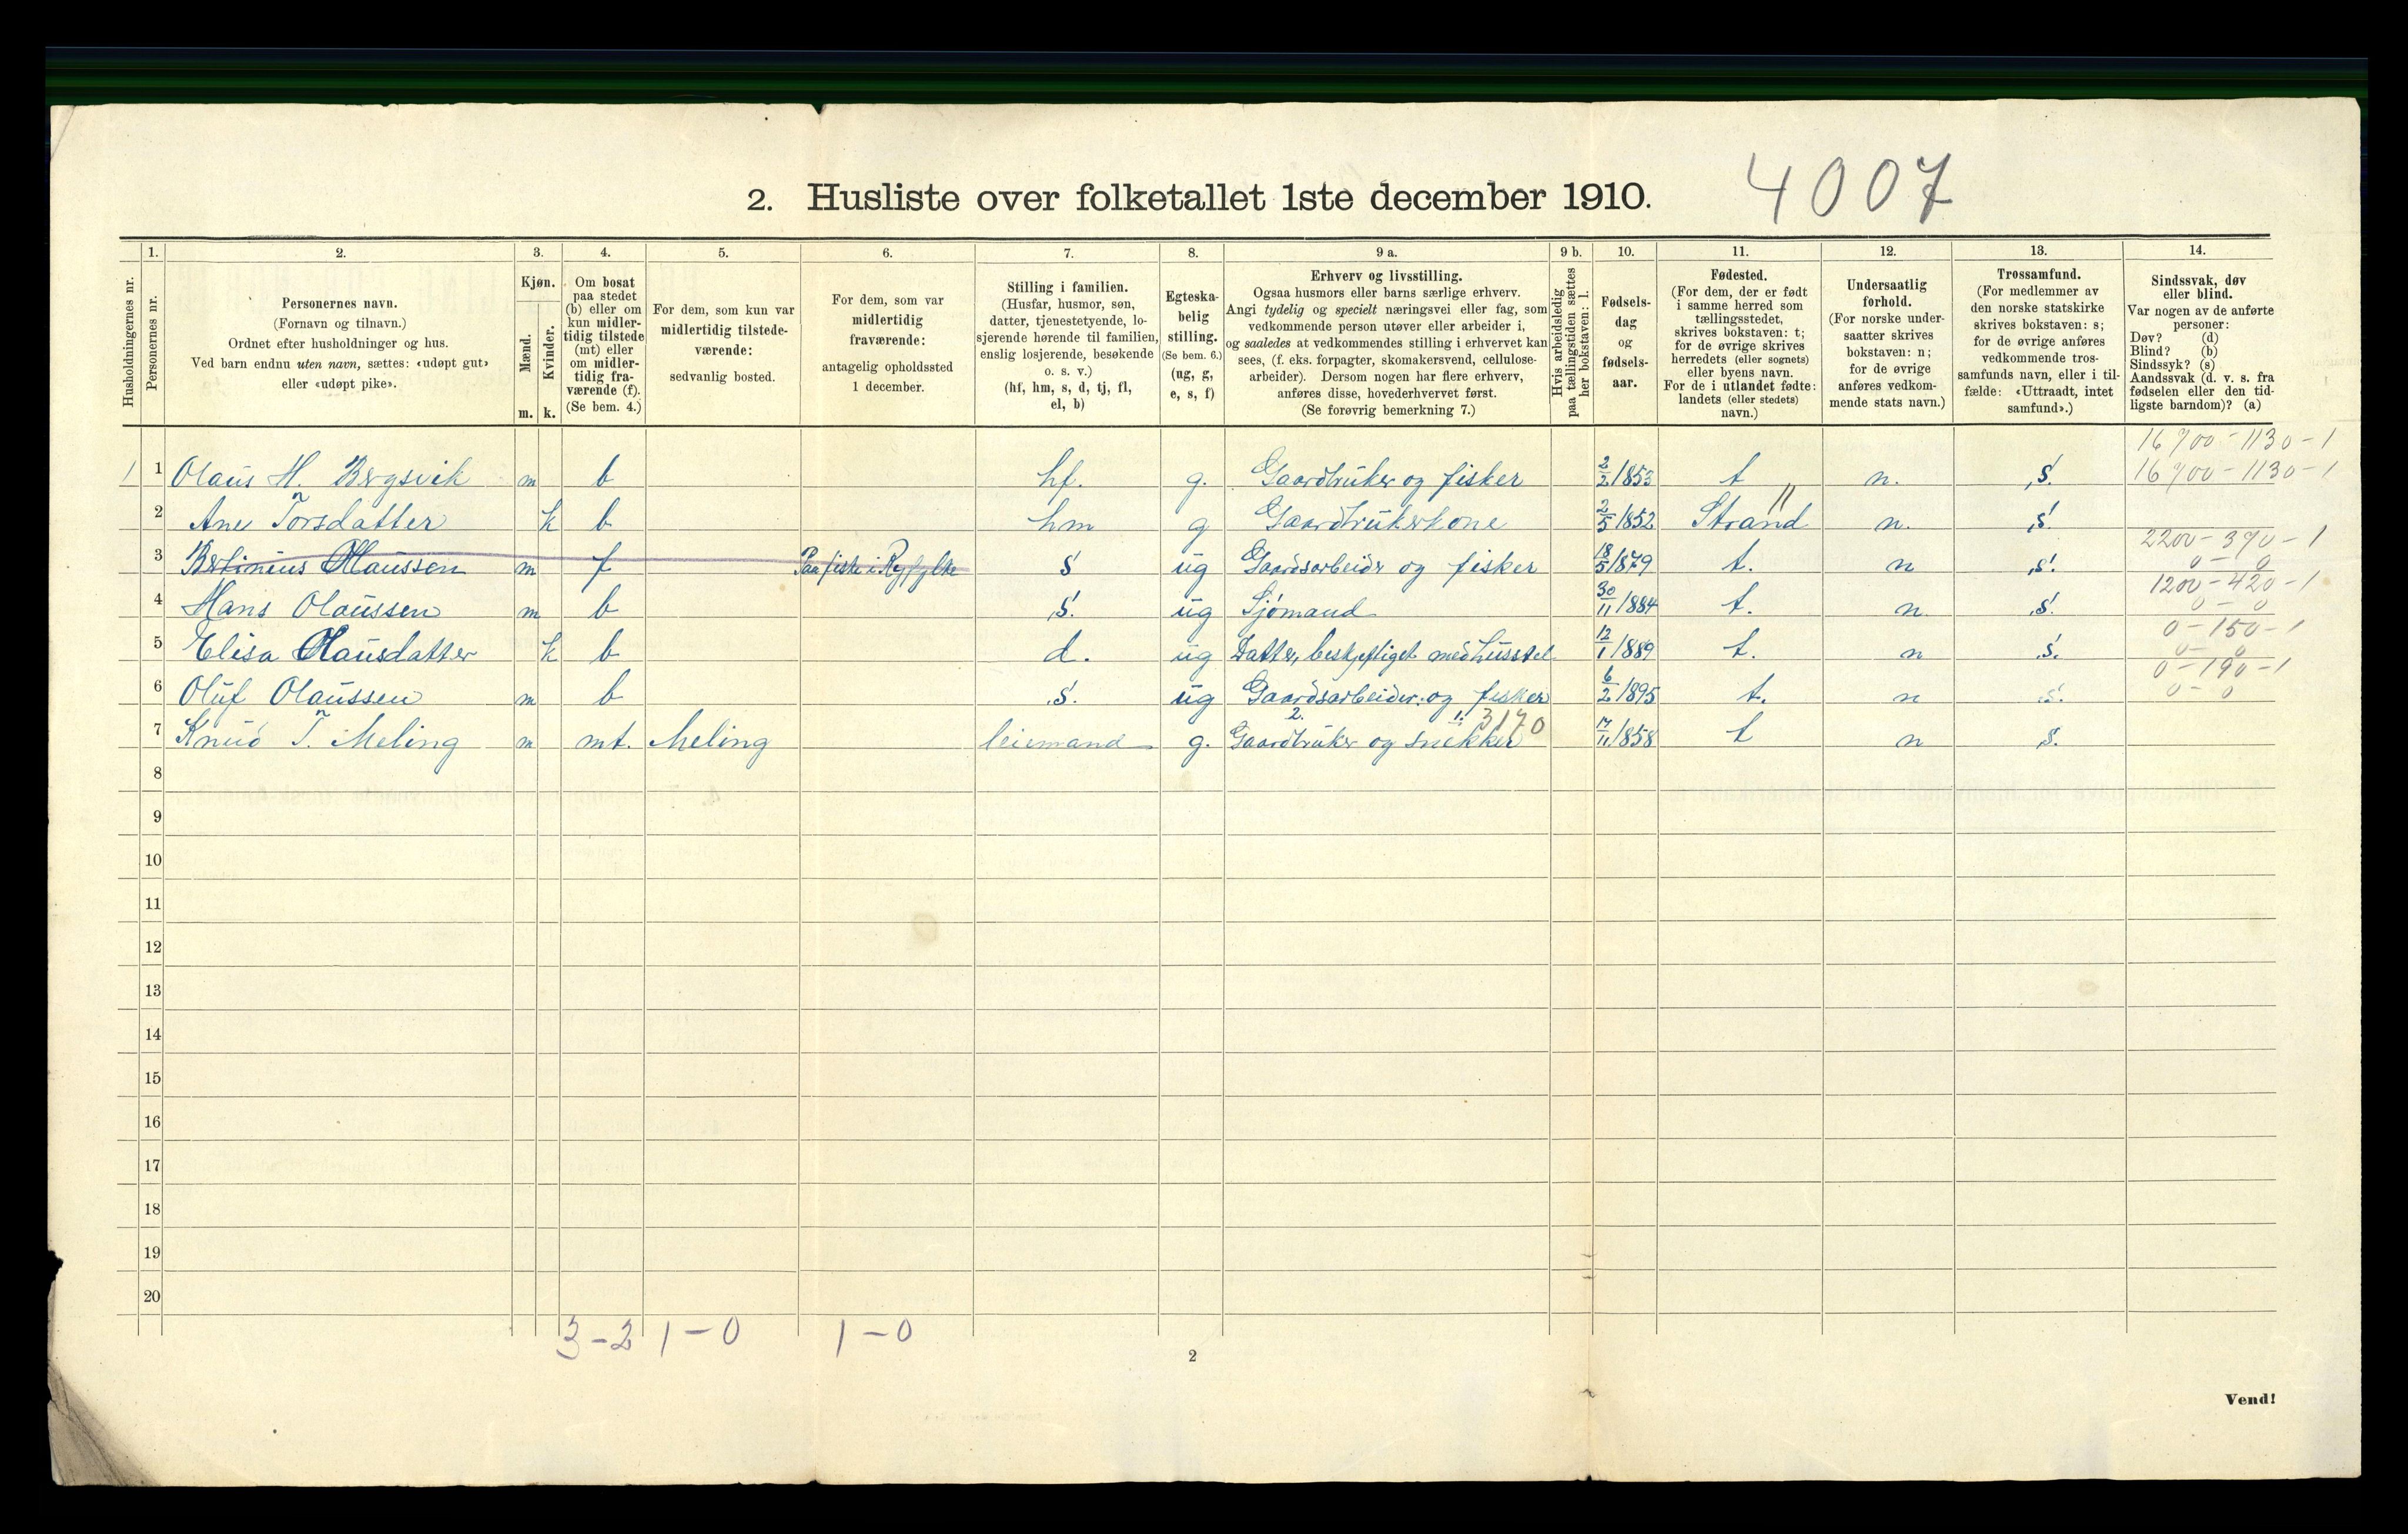 2. Husliste over folketallet 1ste december 1910. 4007
Husholdningernes nr.
1. Personernes nr.
2. Personernes navn.
(Fornavn og tilnavn.)
Ordnet efter husholdninger og hus.
Ved barn endnu uten navn, sættes: «udøpt gut»
eller «udøpt pike».
3. Kjøn.
Mænd. m.
Kvinder. k.
4. Om bosat
paa stedet
(b) eller om
kun midler-
tidig tilstede
(mt) eller
om midler-
tidig fra-
værende (f).
(Se bem. 4.)
5. For dem, som kun var
midlertidig tilstede-
værende:
sedvanlig bosted.
6. For dem, som var
midlertidig
fraværende:
antagelig opholdssted
1 december.
7. Stilling i familien.
(Husfar, husmor, søn,
datter, tjenestetyende, lo-
sjerende hørende til familien,
enslig losjerende, besøkende
o. s. v.)
(hf, hm, s, d, tj, fl,
el, b)
8. Egteska-
belig
stilling.
(Se bem. 6.)
(ug, g,
e, s, f)
9 a. Erhverv og livsstilling.
Ogsaa husmors eller barns særlige erhverv.
Angi tydelig og specielt næringsvei eller fag, som
vedkommende person utøver eller arbeider i,
og saaledes at vedkommendes stilling i erhvervet kan
sees, (f. eks. forpagter, skomakersvend, cellulose-
arbeider). Dersom nogen har flere erhverv,
anføres disse, hovederhvervet først.
(Se forøvrig bemerkning 7.)
9 b. Hvis arbeidsledig
paa tællingstiden sættes
her bokstaven: l.
10. Fødsels-
dag
og
fødsels-
aar.
11. Fødested.
(For dem, der er født
i samme herred som
tællingsstedet,
skrives bokstaven: t;
for de øvrige skrives
herredets (eller sognets)
eller byens navn.
For de i utlandet fødte:
landets (eller stedets)
navn.)
12. Undersaatlig
forhold.
(For norske under-
saatter skrives
bokstaven: n;
for de øvrige
anføres vedkom-
mende stats navn.)
13. Trossamfund.
(For medlemmer av
den norske statskirke
skrives bokstaven: s;
for de øvrige anføres
vedkommende tros-
samfunds navn, eller i til-
fælde: «Uttraadt, intet
samfund».)
14. Sindssvak, døv
eller blind.
Var nogen av de anførte
personer:
Døv? (d)
Blind? (b)
Sindssyk? (s)
Aandssvak (d. v. s. fra
fødselen eller den tid-
ligste barndom)? (a)
16700-1130-1
1 1 Olaus H. Bergsvik m b hf. g. Gaardbruker og fisker 2/2 1853 t n. s. 16700-1130-1
2 Ane Torsdatter k b hm g Gaardbrukerkone 2/5 1852 Strand 11 n. s.
2200-390-1
3 Bertinius Olaussen m f Paa fiske i Ryfylke s ug Gaardsarbeider og fisker 18/5 1879 t. n s. 0-0
1200-420-1
4 Hans Olaussen m b s. ug Sjømand 30/11 1884 t. n. s. 0-0
0-150-1
5 Elisa Olausdatter k b d. ug Datter, beskjeftiget med husstel 12/1 1889 t. n s. 0-0
0-190-1
6 Oluf Olaussen m b s. ug Gaardsarbeider og fisker 6/2 1895 t. n s. 0-0
2. 1. 3170
7 Knud T. Meling m mt. Meling leiemand g. Gaardbruker og snekker 17/11 1858 t n s.
8
9
10
11
12
13
14
15
16
17
18
19
20
3-2 1-0 1-0
2
Vend!